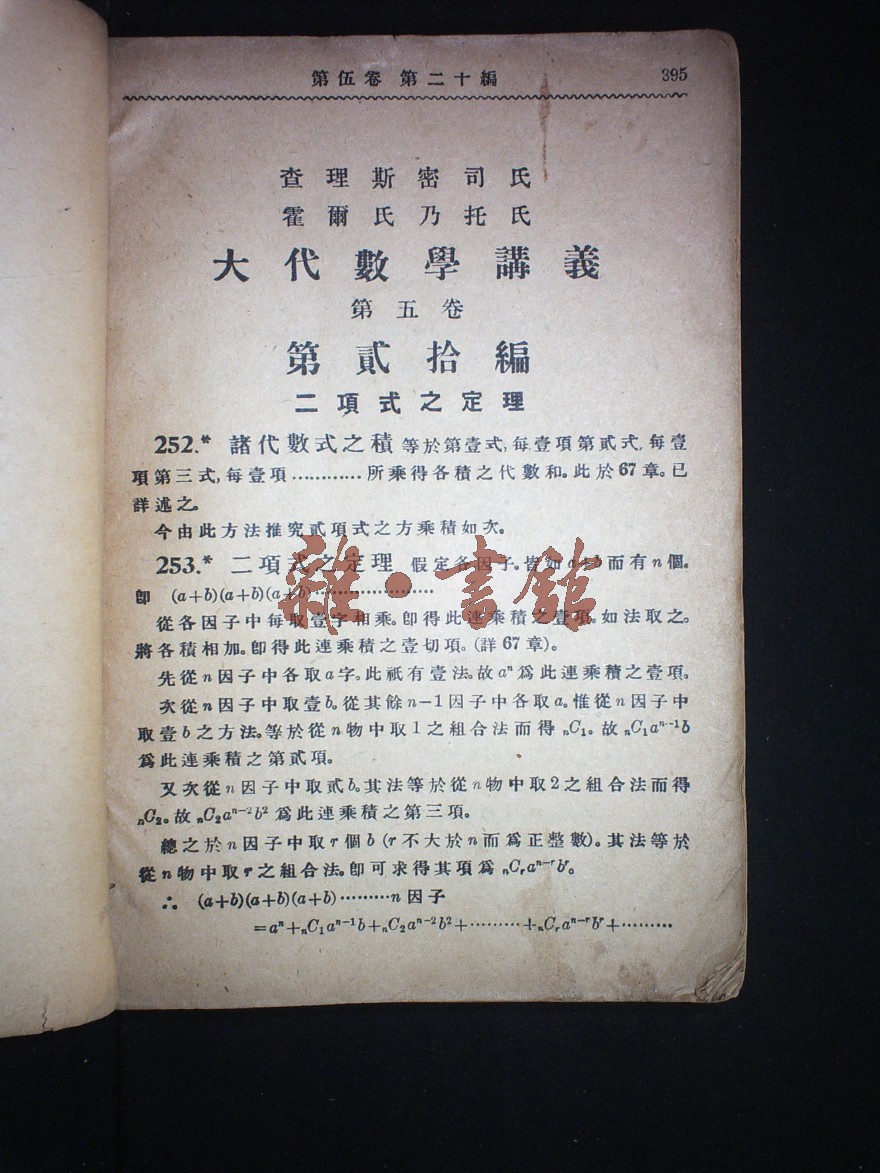 第伍卷 第二十編 395
查理斯密司氏
霍爾氏乃托氏
大代數學講義
第五卷
第貳拾編
二項式之定理
252.* 諸代數式之積 等於第壹式,每壹項第貳式,每壹
項第三式,每壹項…………所乘得各積之代數和。此於67章。已
詳述之。
今由此方法推究貳項式之方乘積如次。
253.* 二項式之定理 假定各因子。皆如a+b而有n個。
卽 (a+b)(a+b)(a+b)…………………
從各因子中每取壹字相乘。卽得此連乘積之壹項。如法取之。
將各積相加。卽得此連乘積之壹切項。(詳67章)。
先從n因子中各取a字。此祇有壹法。故aⁿ爲此連乘積之壹項。
次從n因子中取壹b。從其餘n−1因子中各取a。惟從n因子中
取壹b之方法。等於從n物中取1之組合法而得ₙC₁。故ₙC₁aⁿ⁻¹b
爲此連乘積之第貳項。
又次從n因子中取貳b。其法等於從n物中取2之組合法而得
ₙC₂。故ₙC₂aⁿ⁻²b²爲此連乘積之第三項。
總之於n因子中取r個b(r不大於n而爲正整數)。其法等於
從n物中取r之組合法。卽可求得其項爲ₙCᵣaⁿ⁻ʳbʳ。
∴ (a+b)(a+b)(a+b)………n因子
=aⁿ+ₙC₁aⁿ⁻¹b+ₙC₂aⁿ⁻²b²+………+ₙCᵣaⁿ⁻ʳbʳ+………
雜·書館